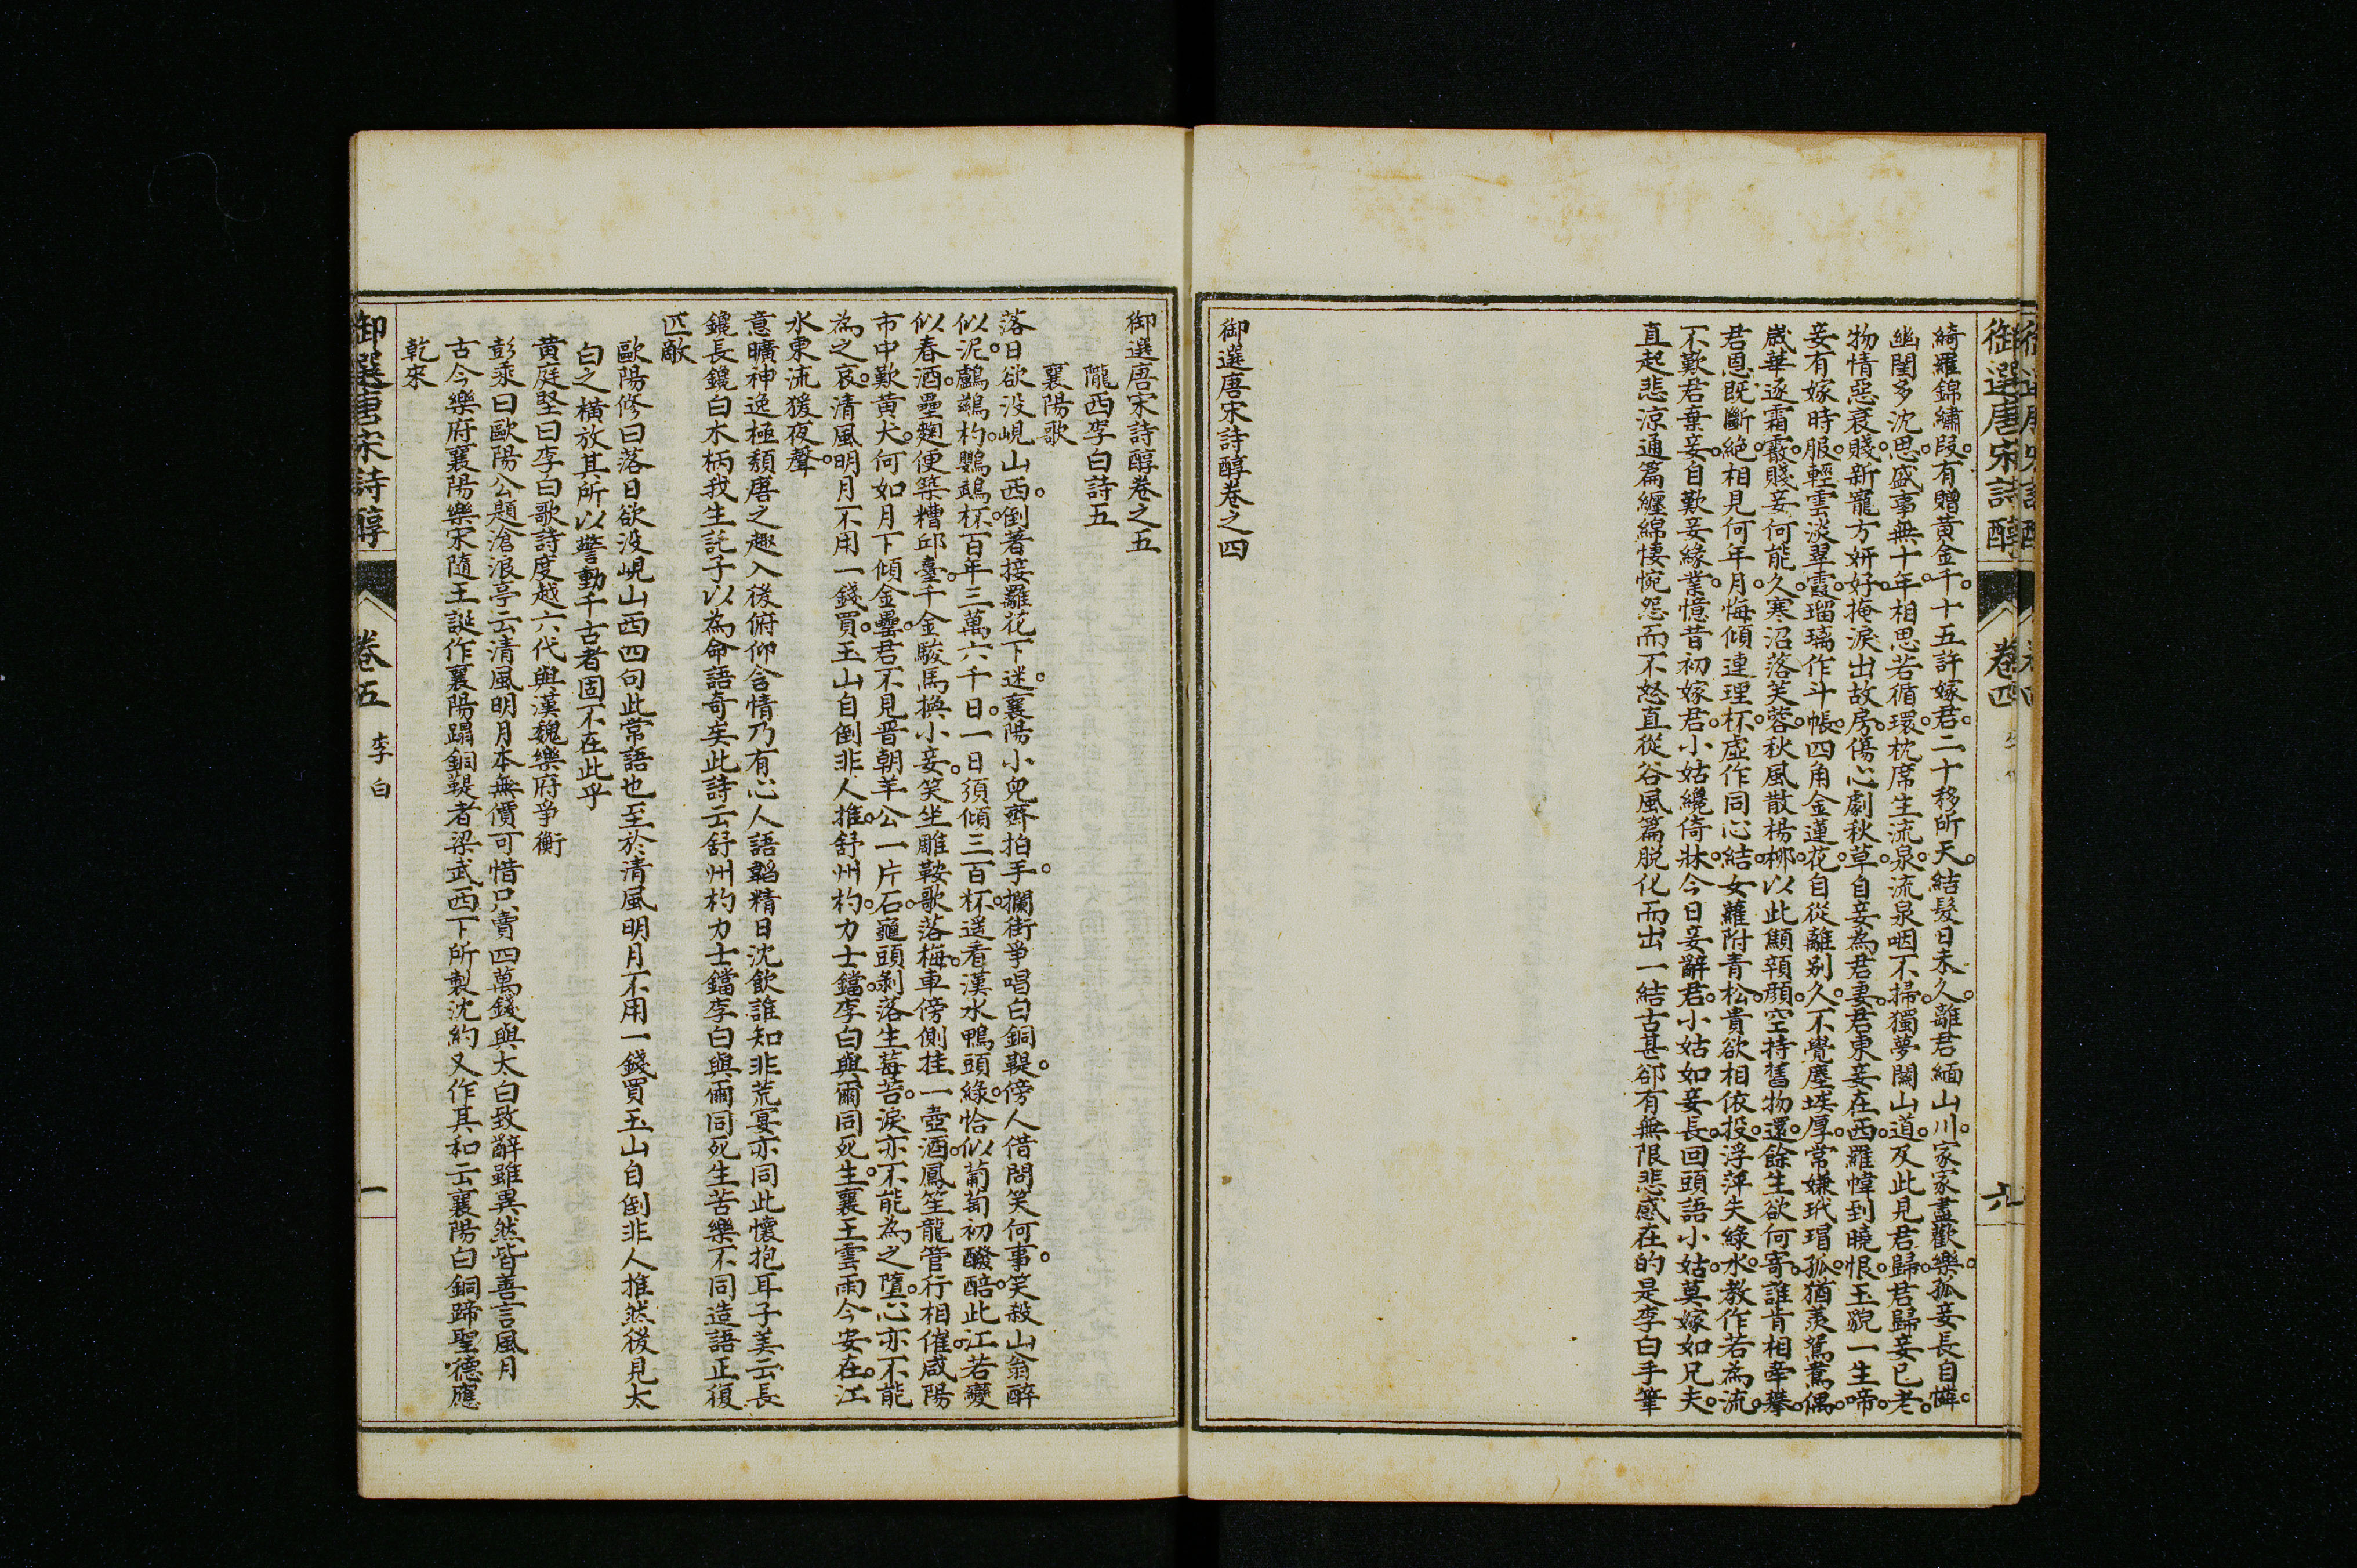 御選唐宋詩醇
卷四
六
綺羅錦繡段。有贈黃金千。十五許嫁君。二十移所天。結髮日未久。離君緬山川。家家盡歡樂。孤妾長自憐。
幽閨多沈思。盛事無十年。相思若循環。枕席生流泉。流泉咽不掃。獨夢關山道。及此見君歸。君歸妾已老。
物情惡衰賤。新寵方妍好。掩淚出故房。傷心劇秋草。自妾為君妻。君東妾在西。羅幃到曉恨。玉貌一生啼。
妾有嫁時服。輕雲淡翠霞。瑠璃作斗帳。四角金蓮花。自從離别久。不覺塵埃厚。常嫌玳瑁孤。猶羨鴛鴦偶。
歲華逐霜霰。賤妾何能久。寒沼落芙蓉。秋風散楊柳。以此顦顇顏。空持舊物還。餘生欲何寄。誰肯相牽攀。
君恩既斷絶。相見何年月。悔傾連理杯。虛作同心結。女蘿附青松。貴欲相依投。浮萍失綠水。教作若為流。
不歎君棄妾。自歎妾緣業。憶昔初嫁君。小姑纔倚牀。今日妾辭君。小姑如妾長。回頭語小姑。莫嫁如兄夫。
直起悲涼通篇纏綿悽惋怨而不怒直從谷風篇脱化而出一結古甚卻有無限悲感在的是李白手筆
御選唐宋詩醇卷之四
御選唐宋詩醇卷之五
隴西李白詩五
襄陽歌
落日欲没峴山西。倒著接䍦花下迷。襄陽小兒齊拍手。攔街爭唱白銅鞮。傍人借問笑何事。笑殺山翁醉
似泥。鸕鷀杓。鸚鵡杯。百年三萬六千日。一日須傾三百杯。遥看漢水鴨頭綠。恰似葡萄初醱醅。此江若變
似春酒。壘麴便築糟邱臺。千金駿馬換小妾。笑坐雕鞍歌落梅。車傍側挂一壺酒。鳳笙龍管行相催。咸陽
市中歎黃犬。何如月下傾金罍。君不見晋朝羊公一片石。龜頭剝落生莓苔。淚亦不能為之墮。心亦不能
為之哀。清風明月不用一錢買。玉山自倒非人推。舒州杓。力士鐺。李白與爾同死生。襄王雲雨今安在。江
水東流猨夜聲。
意曠神逸極頽唐之趣入後俯仰含情乃有心人語韜精日沈飲誰知非荒宴亦同此懷抱耳子美云長
鑱長鑱白木柄我生託子以為命語奇矣此詩云舒州杓力士鐺李白與爾同死生苦樂不同造語正復
匹敵
歐陽修曰落日欲没峴山西四句此常語也至於清風明月不用一錢買玉山自倒非人推然後見太
白之橫放其所以警動千古者固不在此乎
黄庭堅曰李白歌詩度越六代與漢魏樂府爭衡
彭乘曰歐陽公題滄浪亭云清風明月本無價可惜只賣四萬錢與太白致辭雖異然皆善言風月
古今樂府襄陽樂宋隨王誕作襄陽蹋銅鞮者梁武西下所製沈約又作其和云襄陽白銅蹄聖德應
乾來
御選唐宋詩醇
卷五
李白
一